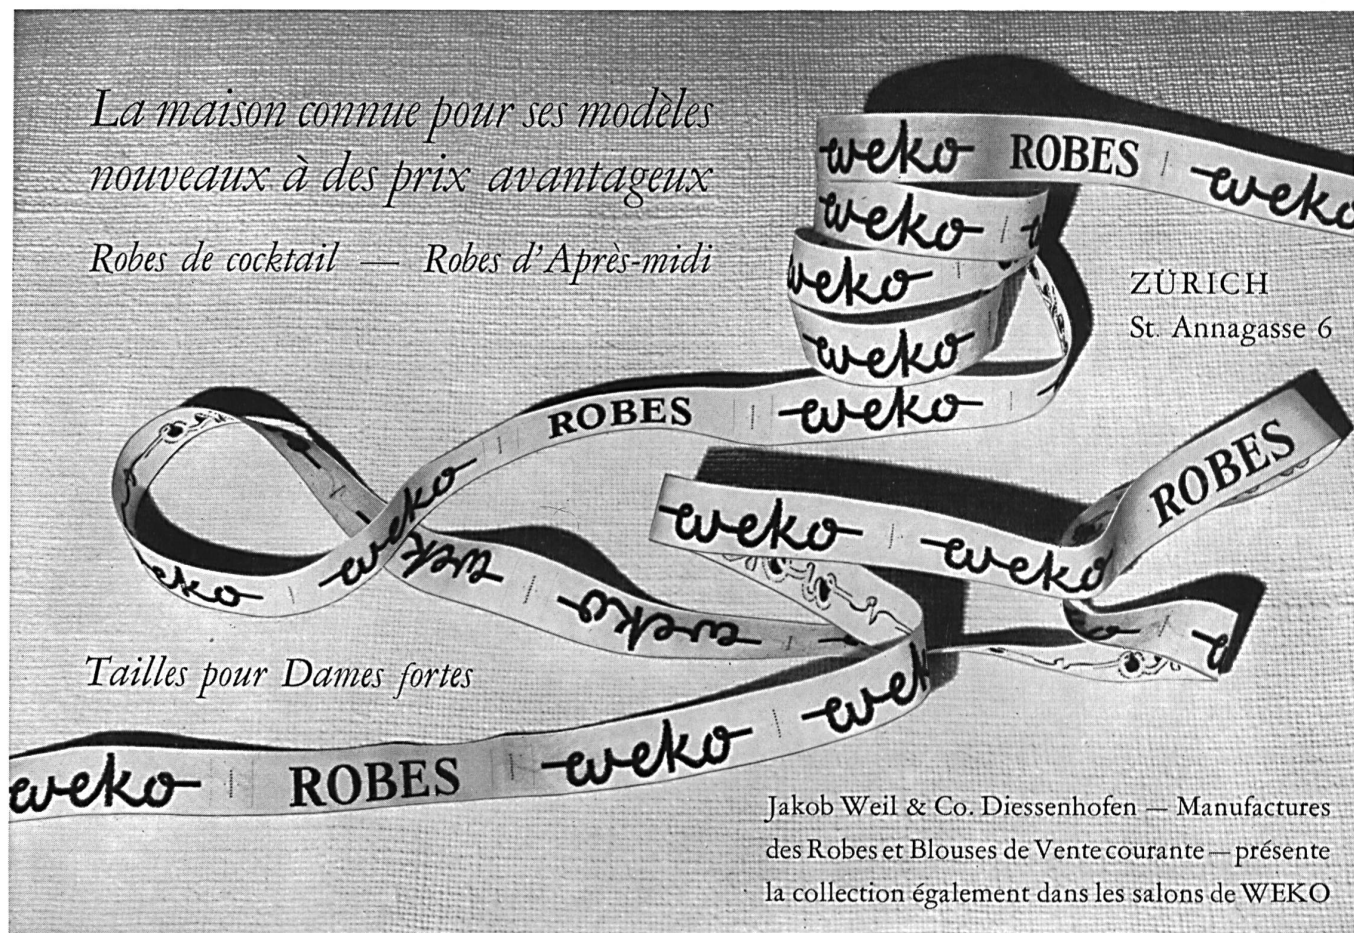 La maison connue pour ses modèles
nouveaux à des prix avantageux
Robes de cocktail — Robes d'Après-midi
weko ROBES weko
weko
weko
weko
ZÜRICH
St. Annagasse 6
ROBES weko
weko
weko weko ROBES
eko
weko
weko
Tailles pour Dames fortes
weko ROBES weko wek
Jakob Weil & Co. Diessenhofen — Manufactures
des Robes et Blouses de Vente courante — présente
la collection également dans les salons de WEKO